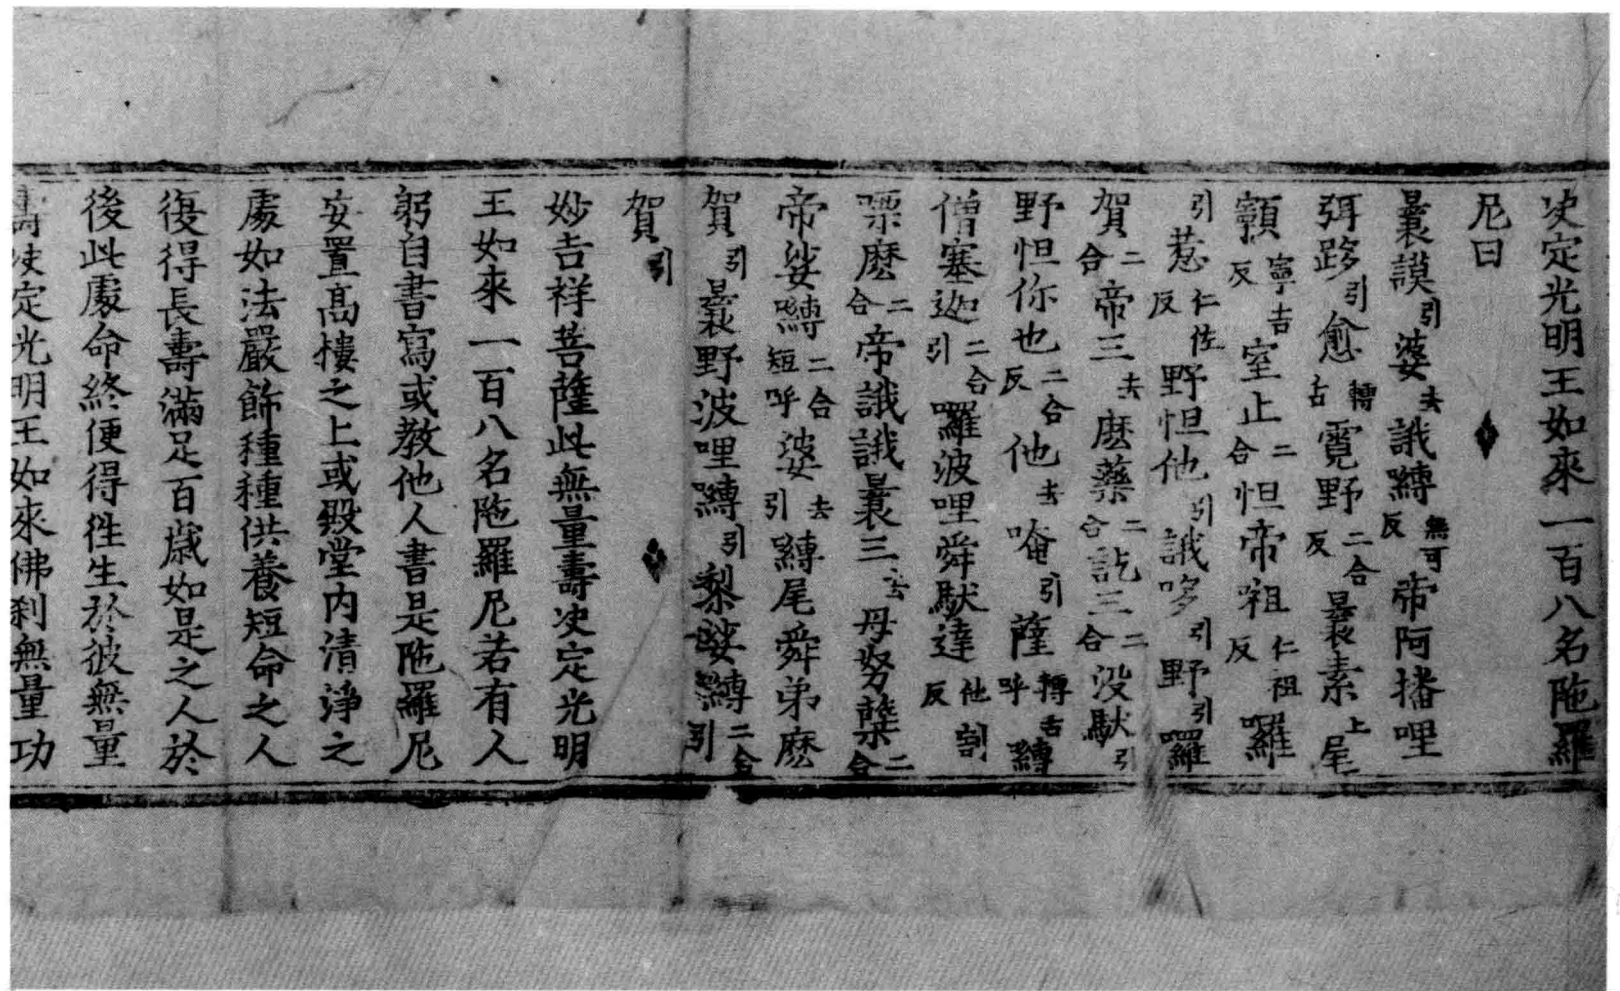 决定光明王如來一百八名陁羅
尼曰
曩謨引婆去誐嚩無可反帝阿播哩
弭跢引愈轉舌霓野二合反曩素上尾
顐寧吉反室止二合怛帝𭉨仁祖反囉
引惹仁佐反野怛他引誐哆引野引囉
賀二合帝三去麽藥二合訖三二合没馱引
野怛你也二合反他去唵引薩轉舌呼嚩
僧塞迦二合引囉波哩舜馱達他割反
嘌麽二合帝誐誐曩三去母努蘖二合
帝娑嚩二合短呼婆去引嚩尾舜弟麽
賀引曩野波哩嚩引梨娑嚩二合引
賀引
妙吉祥菩薩此無量壽决定光明
王如來一百八名陁羅尼若有人
躬自書寫或教他人書是陁羅尼
安置高樓之上或殿堂内清淨之
處如法嚴飾種種供養短命之人
復得長壽滿足百歲如是之人於
後此處命終便得徃生於彼無量
壽决定光明王如來佛刹無量功